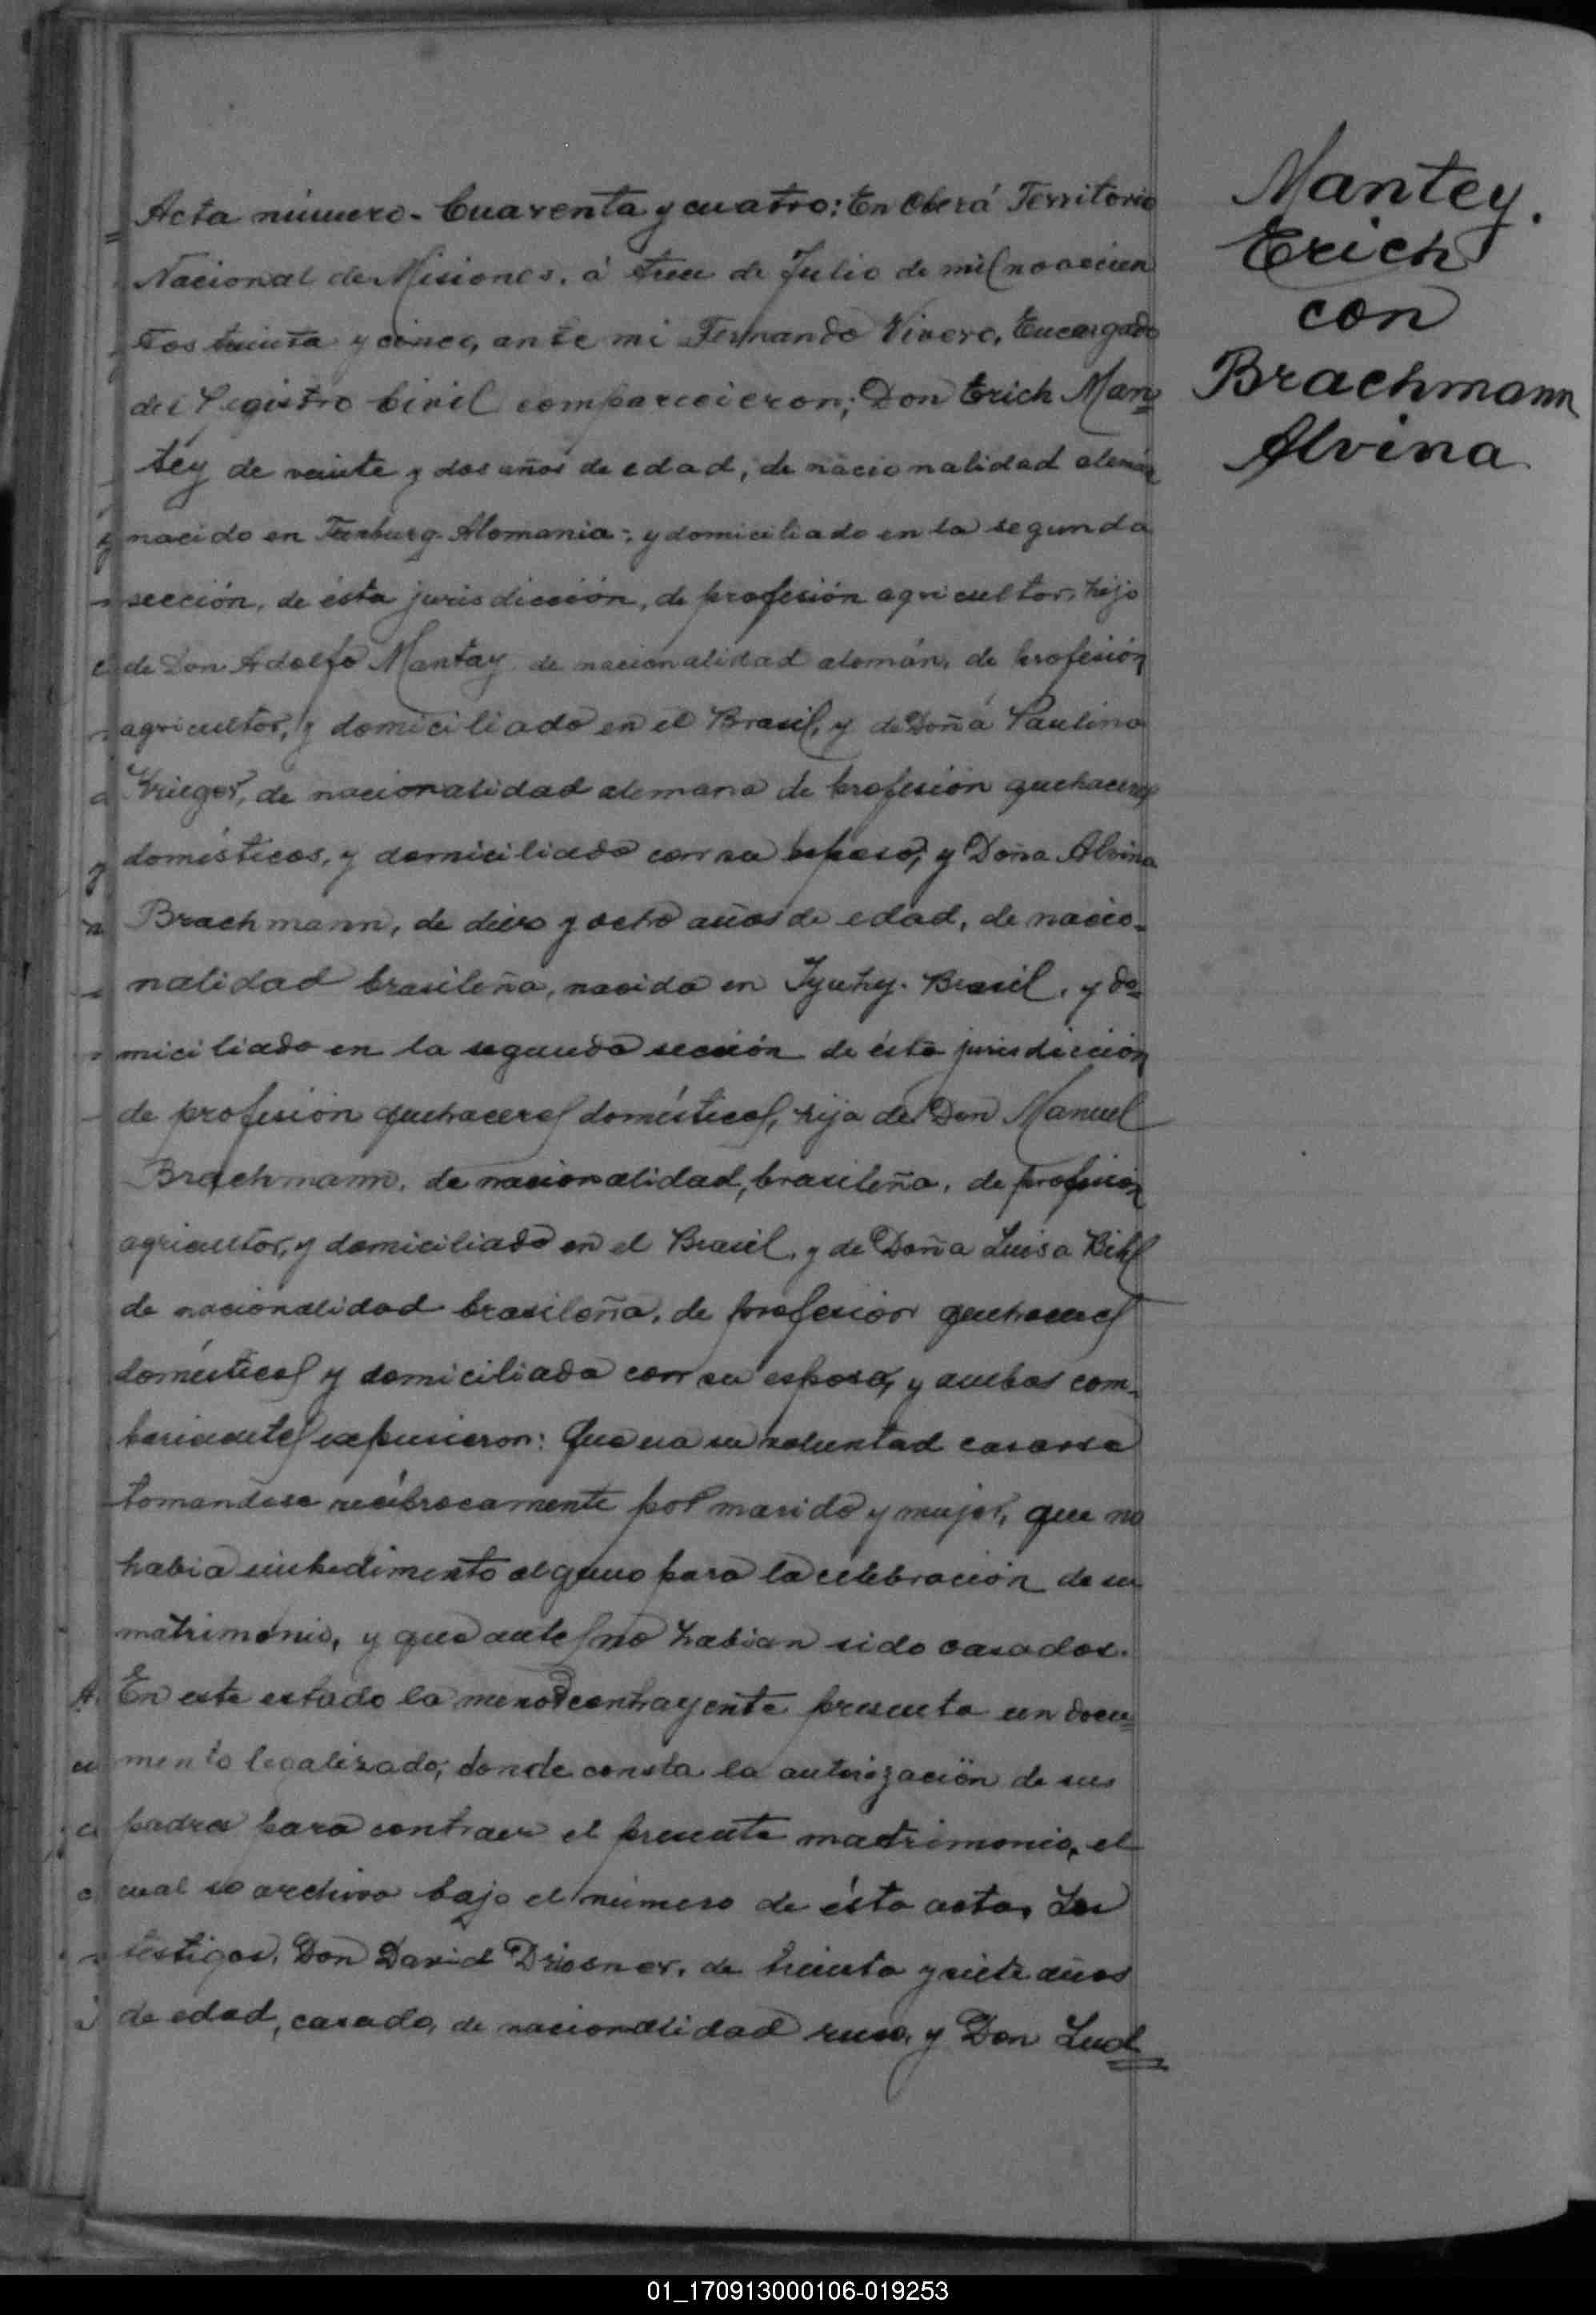 Acta número - Cuarenta y cuatro: En Oberá Territorio
Nacional de Misiones, á trece de Julio de mil novecien
tos treinta y cinco, ante mi Fernando Vivero, Encargado
del Registro Civil comparecieron; Don Erich Man=
tey de veinte y dos años de edad, de nacionalidad alemán
nacido en Alemania; y domiciliado en la segunda
sección, de ésta jurisdicción, de profesión agricultor, hijo
de Don Adolfo Mantay de nacionalidad alemán, de profesión
agricultor, y domiciliado en el Brasil, y de Doña Paulina
Krieger, de nacionalidad alemana de profesión quehaceres
domésticos, y domiciliada con su esposo, y Doña Alvina
Brachmann, de diez y ocho años de edad, de nacio-
nalidad brasileña, nacida en Yyuhy. Brasil, y do=
miciliada en la segunda sección de ésta jurisdicción
de profesión quehaceres domésticos, hija de Don Manuel
Brachmann, de nacionalidad, brasileña, de profesión
agricultor, y domiciliado en el Brasil, y de Doña Luisa
de nacionalidad brasileña, de profesión quehaceres
domésticos y domiciliada con su esposo, y ambos com-
parecientes expusieron: Que era su voluntad casarse
tomandose recíbrocamente por marido y mujer, que no
habia impedimento alguno para la celebración de su
matrimonio, y que antes no habian sido casados.
En este estado la menor contrayente presenta un docu=
mento legalizado, donde consta la autorización de sus
padres para contraer el presente matrimonio, el
cual se archiva bajo el número de ésta acta, Los
testigos, Don David Driesner, de treinta y siete años
de edad, casado, de nacionalidad ruso, y Don Lud=
Mantey.
Erich
con
Brachmann
Alvina
01_170913000106-019253